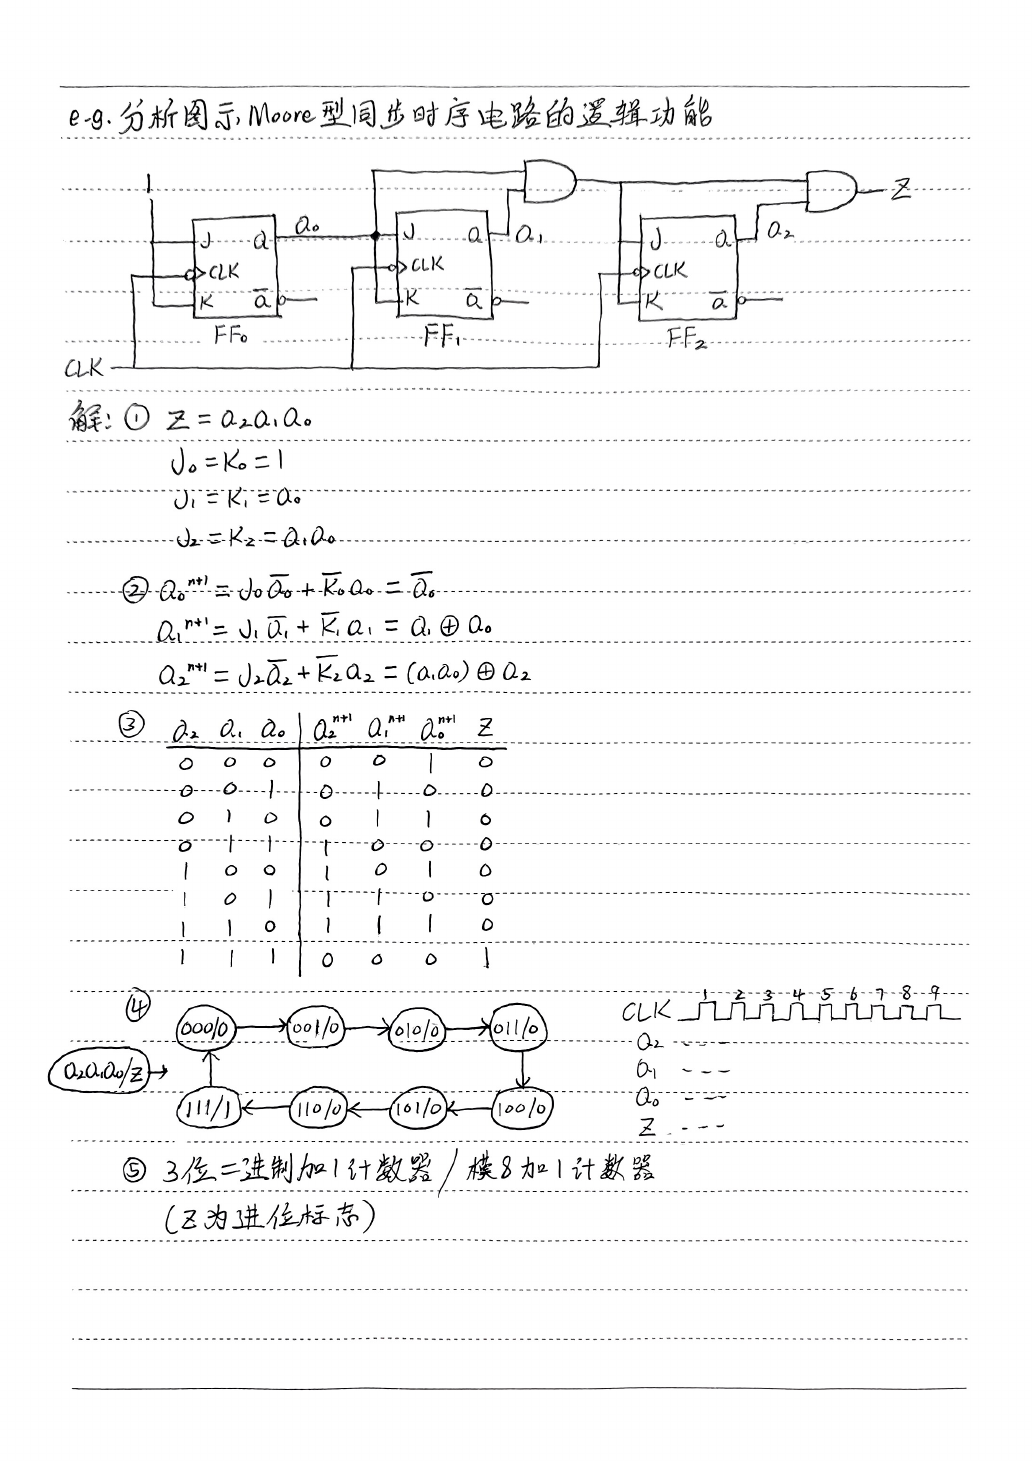 e.g. 分析图示Moore型同步时序电路的逻辑功能
1
Q₀ Q₁ Q₂ Z
J Q J Q J Q
CLK CLK CLK
K Q̅ K Q̅ K Q̅
FF₀ FF₁ FF₂
CLK
解: ① Z = Q₂Q₁Q₀
J₀ = K₀ = 1
J₁ = K₁ = Q₀
J₂ = K₂ = Q₁Q₀
② Q₀ⁿ⁺¹ = J₀Q̅₀ + K̅₀Q₀ = Q̅₀
Q₁ⁿ⁺¹ = J₁Q̅₁ + K̅₁Q₁ = Q₁ ⊕ Q₀
Q₂ⁿ⁺¹ = J₂Q̅₂ + K̅₂Q₂ = (Q₁Q₀) ⊕ Q₂
③ Q₂ Q₁ Q₀ Q₂ⁿ⁺¹ Q₁ⁿ⁺¹ Q₀ⁿ⁺¹ Z
0 0 0 0 0 1 0
0 0 1 0 1 0 0
0 1 0 0 1 1 0
0 1 1 1 0 0 0
1 0 0 1 0 1 0
1 0 1 1 1 0 0
1 1 0 1 1 1 0
1 1 1 0 0 0 1
④
000/0 001/0 010/0 011/0
Q₂Q₁Q₀/Z
111/1 110/0 101/0 100/0
1 2 3 4 5 6 7 8 9
CLK
Q₂ ---
Q₁ ---
Q₀ ---
Z ---
⑤ 3位二进制加1计数器 / 模8加1计数器
(Z为进位标志)